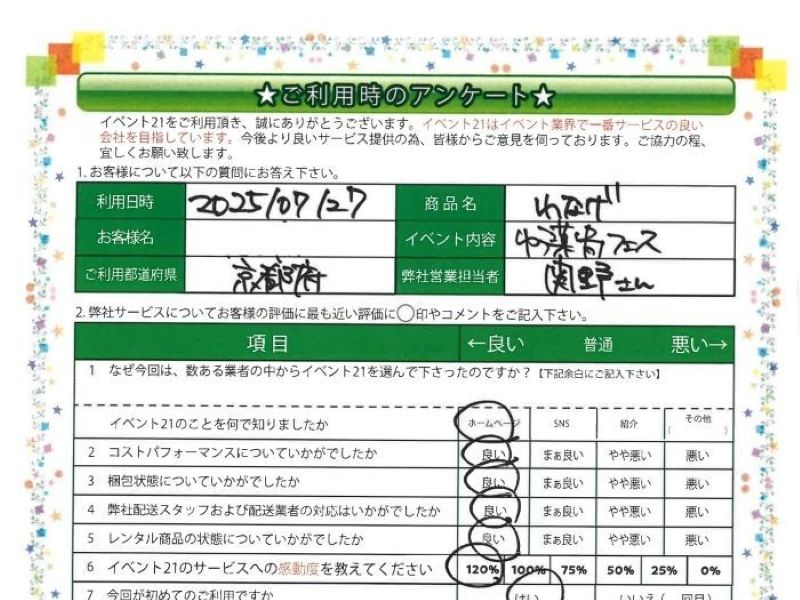 ★ご利用時のアンケート★
イベント21をご利用頂き、誠にありがとうございます。イベント21はイベント業界で一番サービスの良い
会社を目指しています。今後より良いサービス提供の為、皆様からご意見を伺っております。ご協力の程、
宜しくお願い致します。
1. お客様について以下の質問にお答え下さい。
利用日時 2025/07/27 商品名 わなげ
お客様名 イベント内容 フェス
ご利用都道府県 京都府 弊社営業担当者 関野さん
2. 弊社サービスについてお客様の評価に最も近い評価に◯印やコメントをご記入下さい。
項目 ←良い 普通 悪い→
1 なぜ今回は、数ある業者の中からイベント21を選んで下さったのですか？【下記余白にご記入下さい】
イベント21のことを何で知りましたか ホームページ SNS 紹介 その他
( )
2 コストパフォーマンスについていかがでしたか 良い まぁ良い やや悪い 悪い
3 梱包状態についていかがでしたか 良い まぁ良い やや悪い 悪い
4 弊社配送スタッフおよび配送業者の対応はいかがでしたか 良い まぁ良い やや悪い 悪い
5 レンタル商品の状態についていかがでしたか 良い まぁ良い やや悪い 悪い
6 イベント21のサービスへの感動度を教えてください 120% 100% 75% 50% 25% 0%
7 今回が初めてのご利用ですか はい いいえ( 回目)